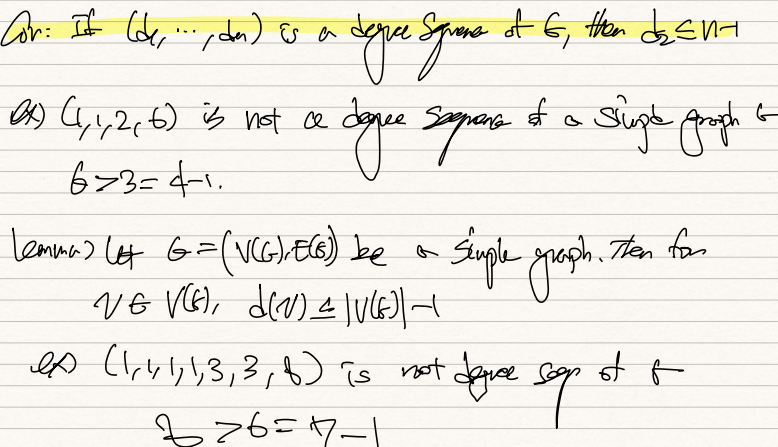 Cor: If (d₁, ⋯, dn) is a degree sequence of G, then d₂ ≤ n-1
ex) (1,1,2,6) is not a degree sequence of a simple graph G
6 > 3 = 4-1.
Lemma) Let G = (V(G), E(G)) be a simple graph. Then for
v ∈ V(G), d(v) ≤ |V(G)| - 1
ex) (1,1,1,1,3,3,8) is not degree seq of G
8 > 6 = 7 - 1